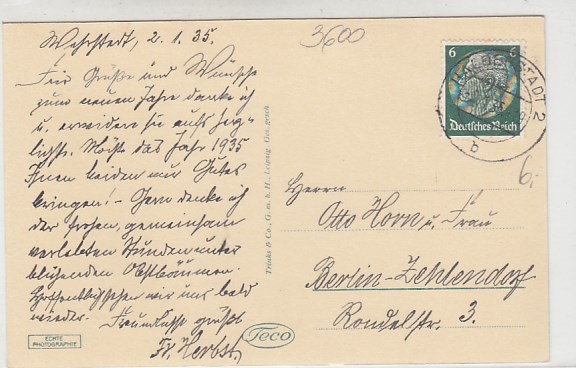 Wehrstedt, 2. 1. 35.
Für Grüße und Wünsche
zum neuen Jahre danke ich
u. erwidere sie aufs herz-
lichste. Möge das Jahr 1935
Ihnen beiden nur Gutes
bringen! - Gern denke ich
der frohen, gemeinsam
verlebten Stunden unter
blühenden Obstbäumen.
Hoffentlich sehen wir uns bald
wieder. grüßt
Fr. Herbst
3600
6 6
Deutsches Reich
HALBERSTADT 2
b
6.-
Herrn
Otto Horn u. Frau
Berlin-Zehlendorf
Rondelstr. 3.
Trinks & Co., G. m. b. H., Leipzig. Ges. gesch.
ECHTE
PHOTOGRAPHIE
Teco